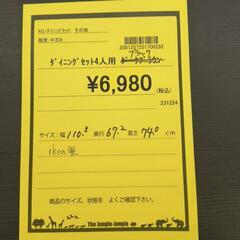 KG:ダイニングセット その他
程度:中古B
2001257251700292
ダイニングセット4人用
ブラック
ダークブラウン
¥6,980
(税込)
231224
サイズ:幅 110.3 奥行 67.2 高さ 74.0 cm
ikea製
商品のサイズ、状態を よくご確認下さい。
The Jungle-Jungle